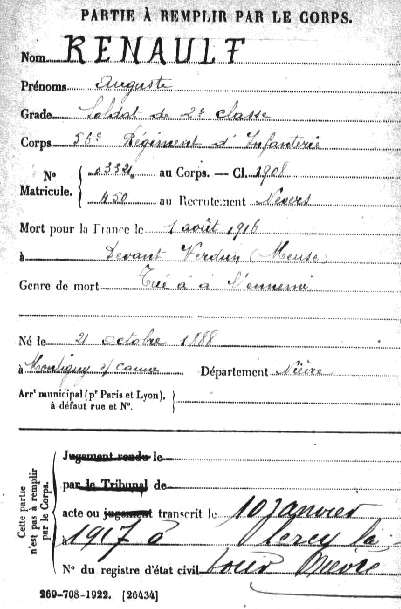 PARTIE À REMPLIR PAR LE CORPS.
Nom RENAULT
Prénoms Auguste
Grade Soldat de 2e classe
Corps 56e Régiment d'Infanterie
N° Matricule. { 03321 au Corps. — Cl. 1908
450 au Recrutement Nevers
Mort pour la France le 1 août 1916
à Devant Verdun (Meuse)
Genre de mort Tué à à l'ennemi
Né le 21 octobre 1888
à Montigny s/ Canne Département Nièvre
Arrt municipal (pr Paris et Lyon), à défaut rue et N°. }
Cette partie n'est pas à remplir par le Corps. { Jugement rendu le
par le Tribunal de
acte ou jugement transcrit le 10 janvier
1917 à Cercy la
N° du registre d'état civil Tour Nièvre
269-708-1922. [26434]